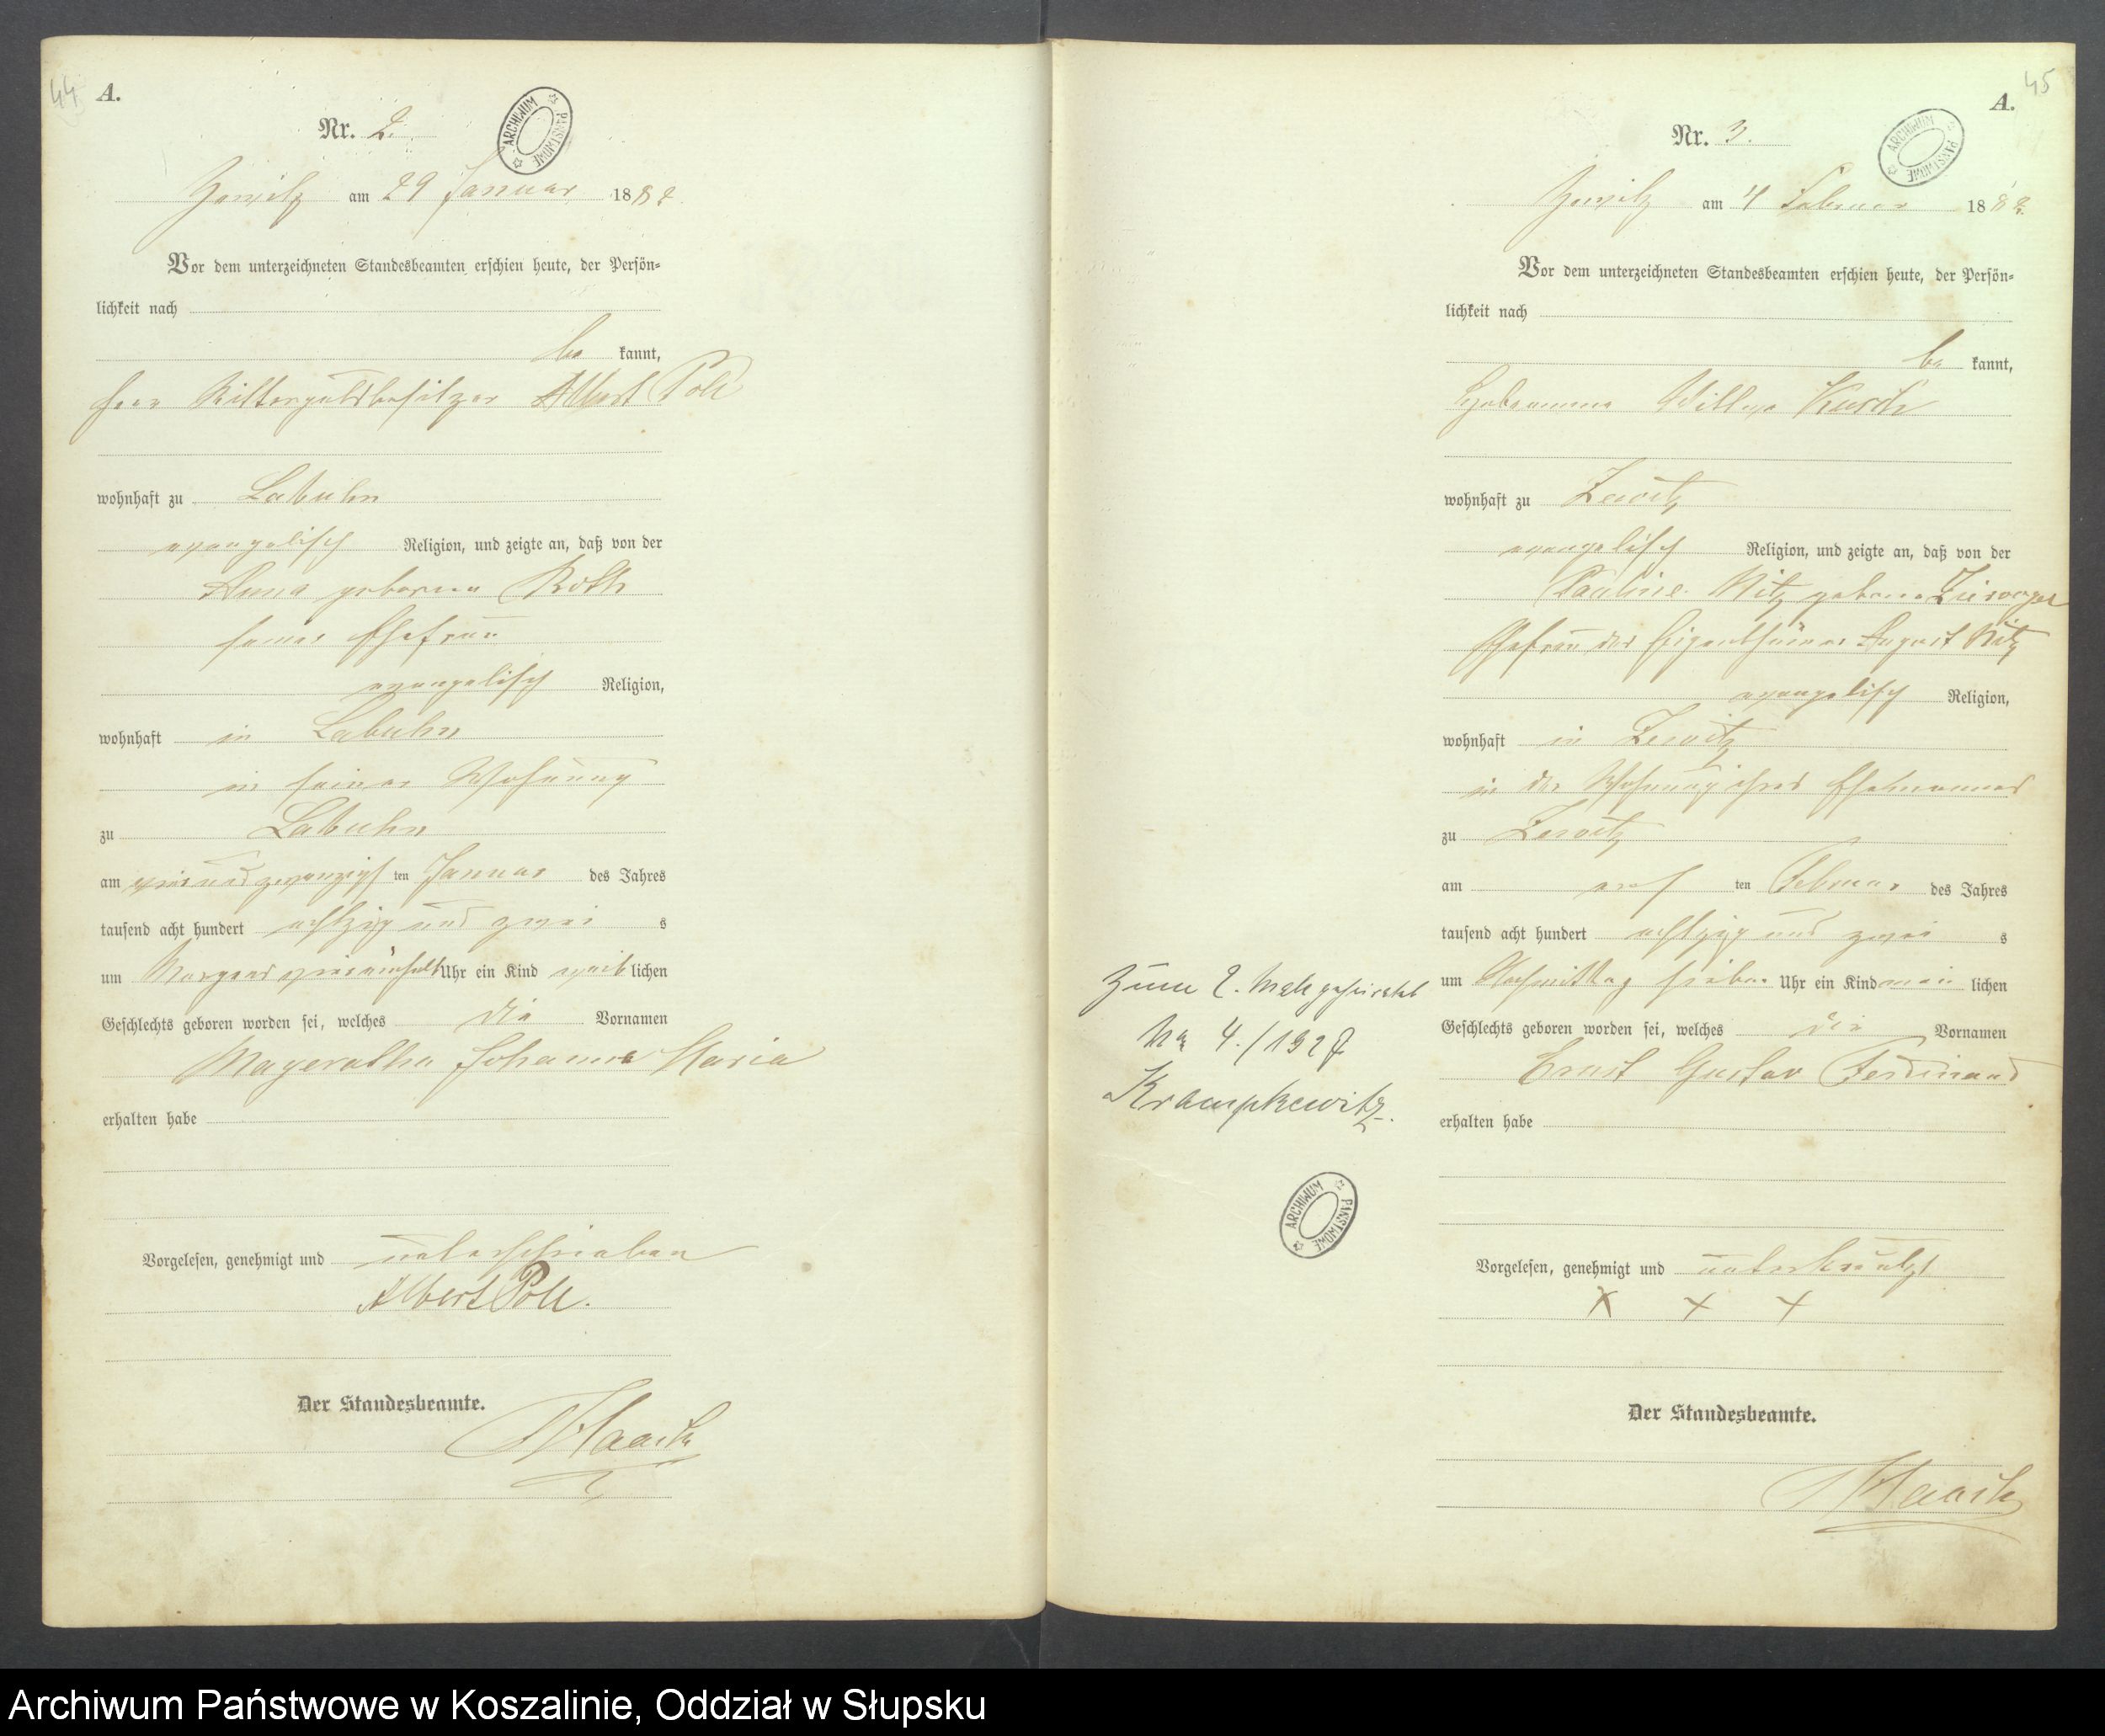 44
A.
Nr. 2.
ARCHIWUM PAŃSTWOWE
Zewitz am 29 Januar 1882.
Vor dem unterzeichneten Standesbeamten erschien heute, der Persön-
lichkeit nach
be kannt,
Herr Rittergutsbesitzer Albert
wohnhaft zu Labuhn
evangelisch Religion, und zeigte an, daß von der
Anna geborene Roth
seiner Ehefrau
evangelisch Religion,
wohnhaft in Labuhn
in seiner Wohnung
zu Labuhn
am ten Januar des Jahres
tausend acht hundert achtzig und zwei s
um Morgens Uhr ein Kind weib lichen
Geschlechts geboren worden sei, welches die Vornamen
Johanna Maria
erhalten habe
Vorgelesen, genehmigt und unterschrieben
Albert
Der Standesbeamte.
45
A.
Nr. 3.
ARCHIWUM PAŃSTWOWE
Zewitz am 4 Februar 1882.
Vor dem unterzeichneten Standesbeamten erschien heute, der Persön-
lichkeit nach
be kannt,
Hebamme
wohnhaft zu Zewitz
evangelisch Religion, und zeigte an, daß von der
Pauline Nitz geborene
Ehefrau des Eigenthümer August Nitz
evangelisch Religion,
wohnhaft in Zewitz
in der Wohnung ihres Ehemannes
zu Zewitz
am ten Februar des Jahres
tausend acht hundert achtzig und zwei s
um Nachmittag sieben Uhr ein Kind män lichen
Geschlechts geboren worden sei, welches die Vornamen
Ernst Gustav Ferdinand
erhalten habe
Zum 2. Male geheiratet
Nr 4./192
Krampkewitz.
ARCHIWUM PAŃSTWOWE
Vorgelesen, genehmigt und unterkreutzt
X X X
Der Standesbeamte.
Archiwum Państwowe w Koszalinie, Oddział w Słupsku